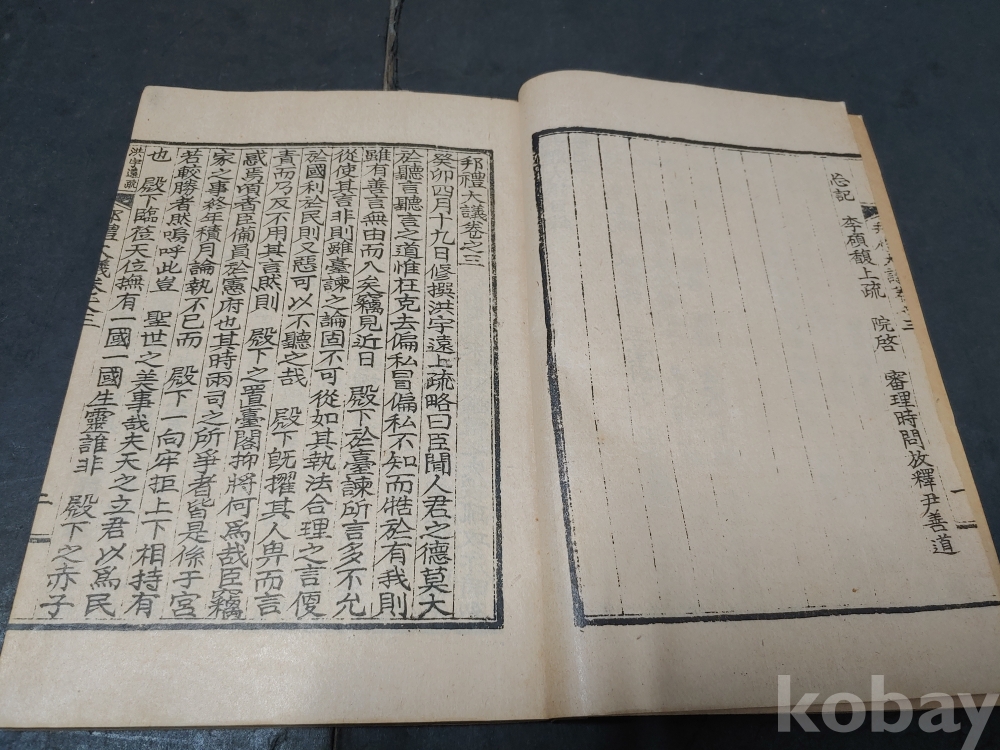 忌記　李碩馥上疏　院啓　審理時問放釋尹善道
一
邦禮大議卷之三
癸卯四月十九日修撰洪宇遠上疏略曰臣聞人君之德莫大
於聽言聽言之道惟在克去偏私冒偏私不知而牿於有我則
雖有善言無由而入矣竊見近日　殿下於臺諫所言多不允
從使其言非則雖臺諫之論固不可從如其執法合理之言便
於國利於民則又惡可以不聽之哉　殿下旣擢其人畀而言
責而乃反不用其言然則　殿下之置臺閣抑將何爲哉臣竊
惑焉頃者臣備員於憲府也其時兩司之所爭者皆是係于宮
家之事終年積月論執不已而　殿下一向牢拒上下相持有
若較勝者然嗚呼此豈　聖世之美事哉夫天之立君以爲民
也　殿下臨莅天位撫有一國一國生靈誰非　殿下之赤子
洪宇遠疏
邦禮大議卷之三
二
kobay